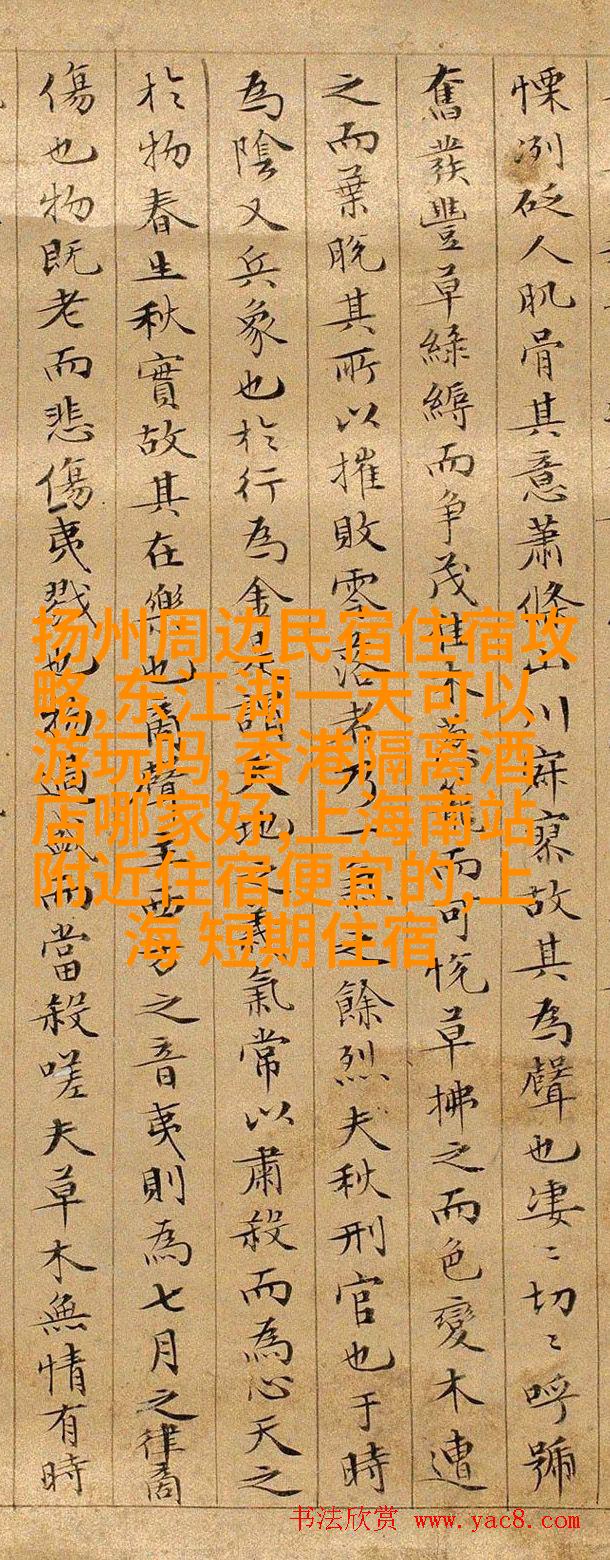 慄冽砭人肌骨其意蕭條山川寂寥故其為聲也凄〻切〻呼號
奮發豐草綠縟而争茂佳木蔥籠而可悅草拂之而色變木遭
之而葉脫其所以摧敗零落者乃一氣之餘烈夫秋刑官也于時
為陰又兵象也於行為金是謂天地之義氣常以肅殺而為心天之
於物春生秋實故其在樂也商聲主西方之音夷則為七月之律商
傷也物既老而悲傷夷戮也物過盛而當殺嗟夫草木無情有時
扬州周边民宿住宿攻
略,东江湖一天可以
游玩吗,香港隔离酒
店哪家好,上海南站
附近住宿便宜的,上
海 短期住宿
书法欣赏 www.yac8.com